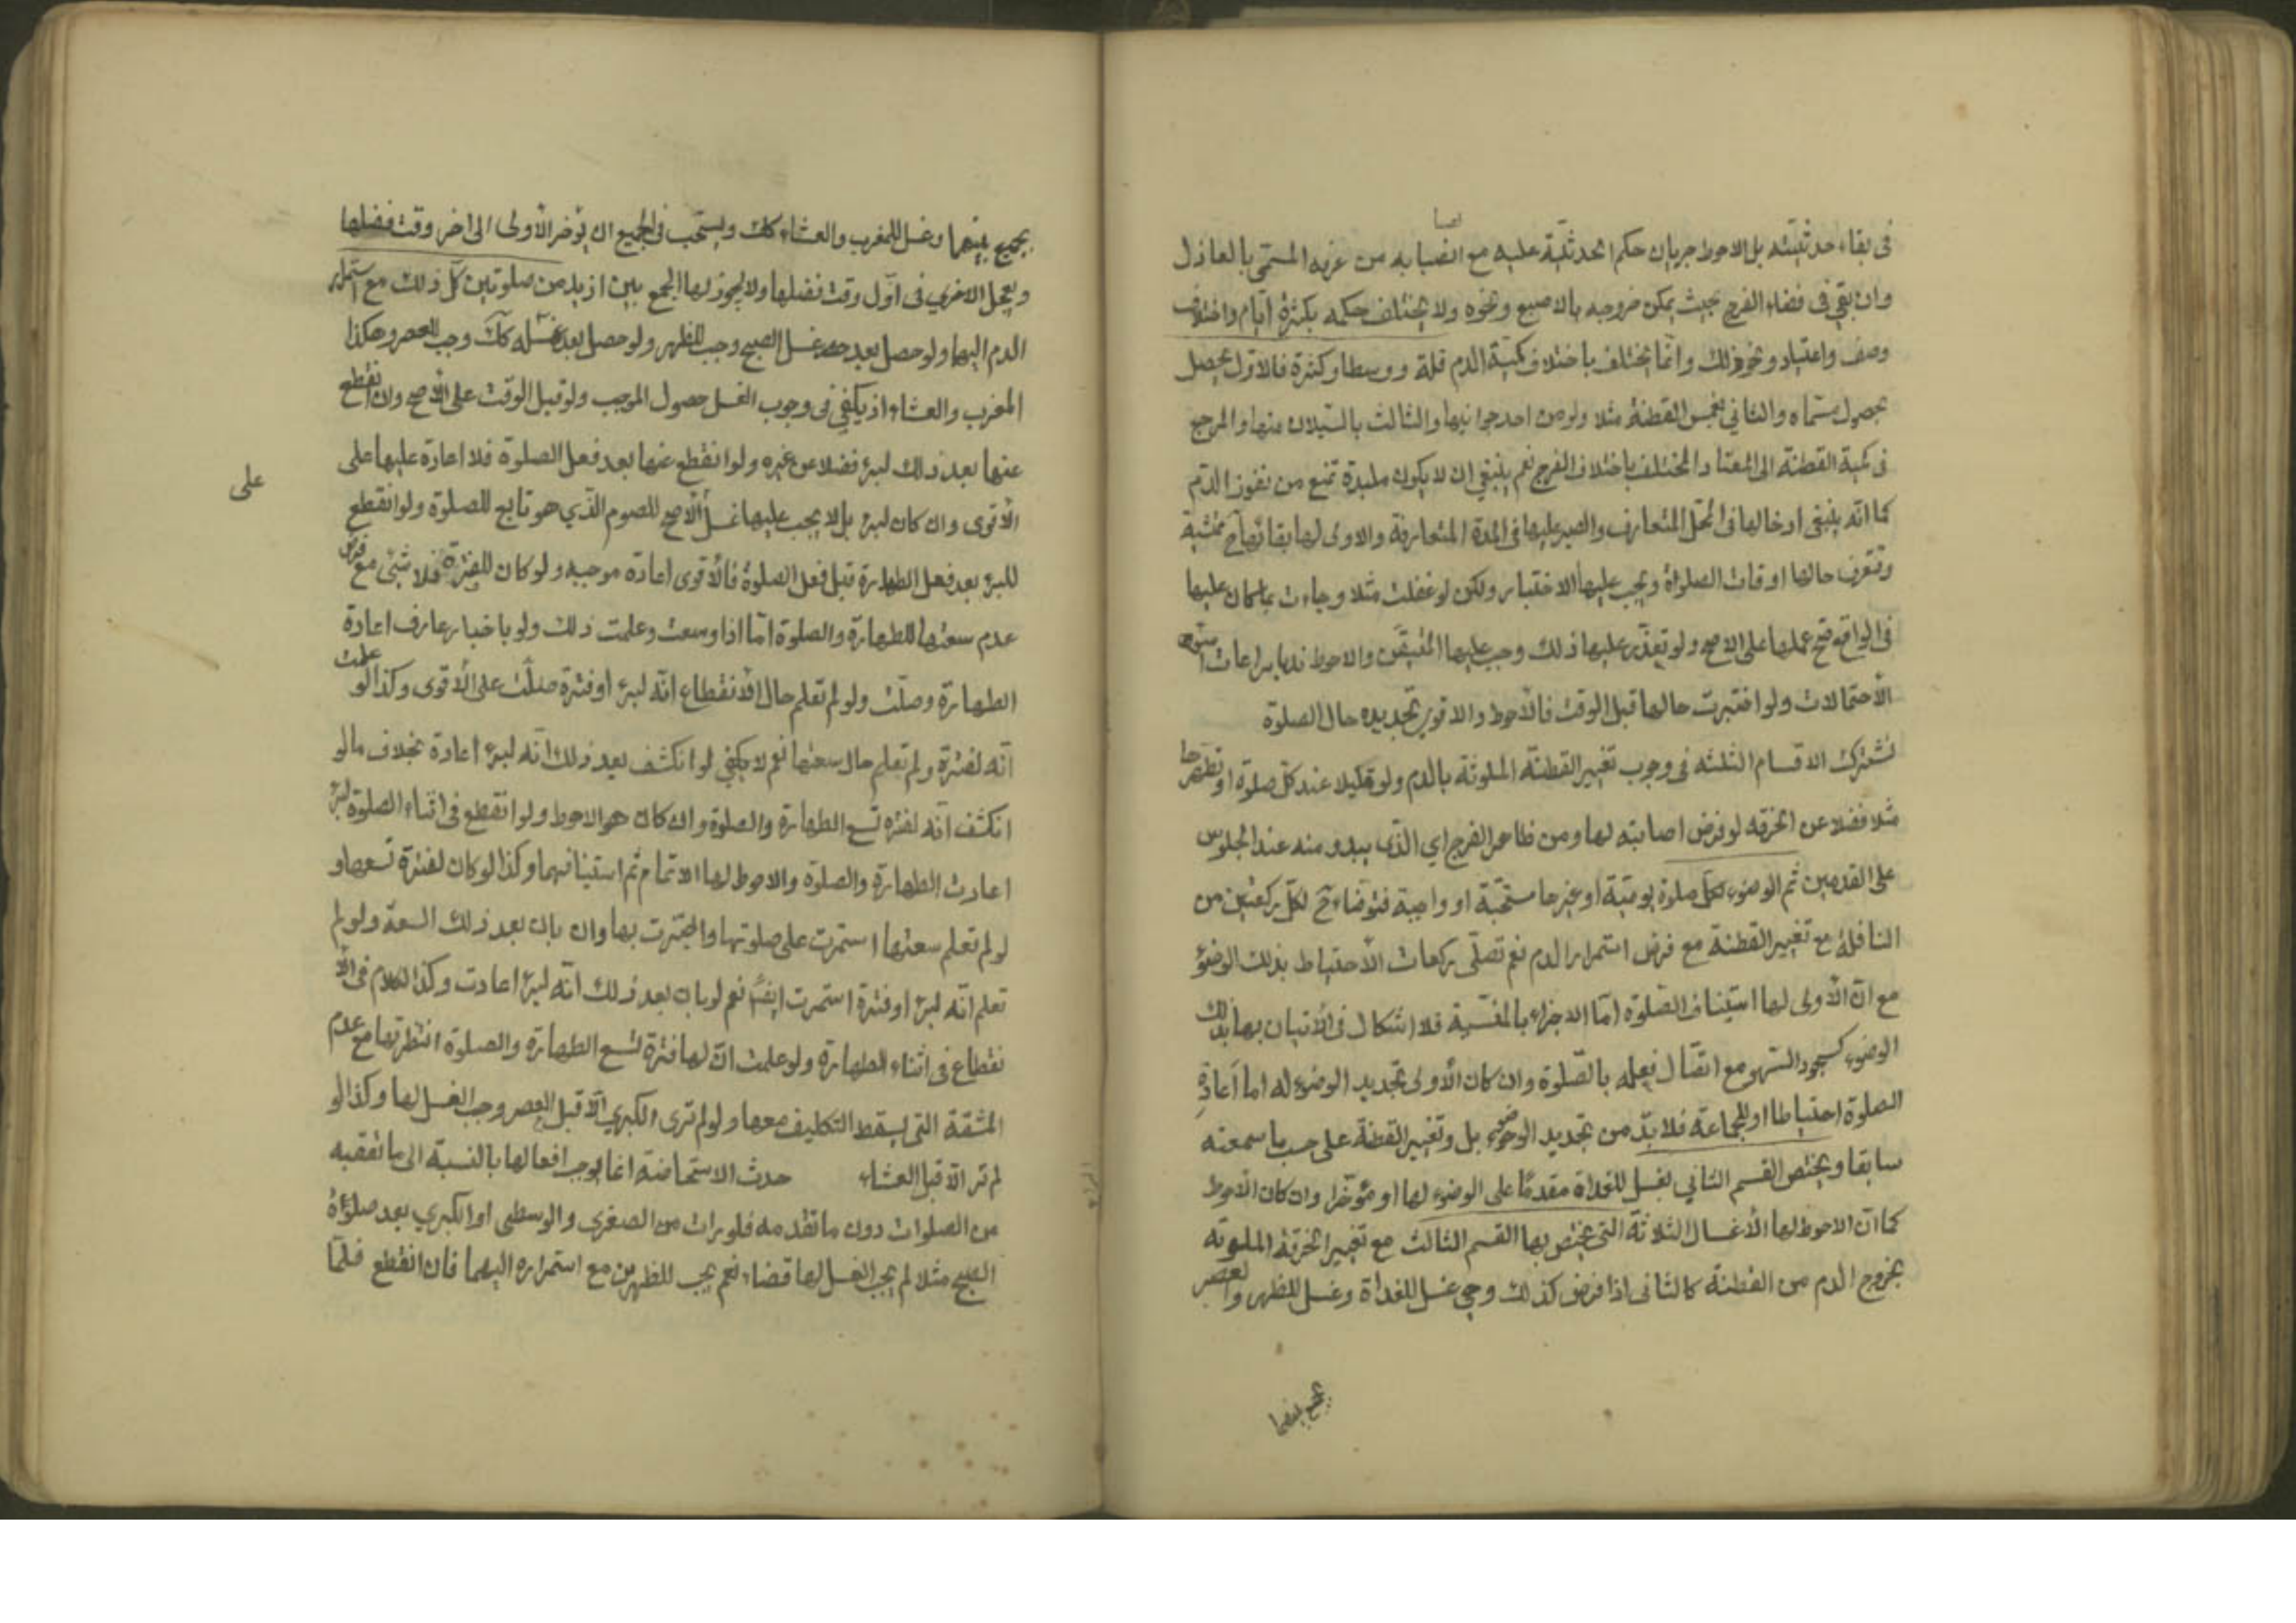 في بقاء حدثيته بل الاحوط جريان حكم الحدثية عليه مع انصبابه من عرقه المسمى بالعاذل
وان بقي في فضاء الفرج بحيث يمكن خروجه بالاصبع ونحوه ولا يختلف حكمه بكثرة ايام واختلاف
وصف واعتياد ونحو ذلك وانما يختلف باختلاف كمية الدم قلة ووسطا وكثرة فالاول يحصل
بحصول مسماه والثاني بغمس القطنة مثلا ولو من احد جوانبها والثالث بالسيلان منها والمرجع
في كمية القطنة الى المعتاد المختلف باختلاف الفرج نعم ينبغي ان لا يكون ملبدة تمنع من نفوذ الدم
كما انه ينبغي ادخالها في المحل المتعارف والصبر عليها في المدة المتعارفة والاولى لها بقائها محتشية
وتتعرف حالها اوقات الصلوة ويجب عليها الاختبار ولكن لو غفلت مثلا وجاءت بما كان عليها
في الواقع صح عملها على الاصح ولو تعذر عليها ذلك وجب عليها المتيقن والاحوط لها مراعات اسوء
الاحتمالات ولو اختبرت حالها قبل الوقت فالاحوط والاقوى تجديده حال الصلوة
تشترك الاقسام الثلثة في وجوب تغيير القطنة الملوثة بالدم ولو قليلا عند كل صلوة او تطهيرها
مثلا فضلا عن الخرقه لو فرض اصابته لها ومن ظاهر الفرج اي الذي يبدو منه عند الجلوس
على القدمين ثم الوضوء لكل صلوة يومية او غيرها مستحبة او واجبة فتوضاء ح لكل ركعتين من
النافلة مع تغيير القطنة مع فرض استمرار الدم نعم تصلى ركعات الاحتياط بذلك الوضوء
مع ان الاولى لها استيناف الصلوة اما الاجزاء المنسية فلا اشكال في الاتيان بها بذلك
الوضوء كسجود السهو مع اتصال فعله بالصلوة وان كان الاولى تجديد الوضوء له اما اعادة
الصلوة احتياطا او للجماعة فلا بد من تجديد الوضوء بل وتغيير القطنة على حسب ما سمعته
سابقا ويختص القسم الثاني بغسل للغداة مقدما على الوضوء لها او مؤخرا وان كان الاحوط
كما ان الاحوط لها الاغسال الثلاثة التي يختص بها القسم الثالث مع تغيير الخرقة الملوثه
بخروج الدم من القطنة كالثاني اذا فرض كذلك وهي غسل للغداة وغسل للظهر والعصر
يجمع بينهما
يجمع بينهما وغسل للمغرب والعشاء كك ويستحب في الجميع ان يؤخر الاولى الى اخر وقت فضلها
ويعجل الاخرى في اول وقت فضلها ولا يجوز لها الجمع بين ازيد من صلوتين كل ذلك مع استمرار
الدم اليها ولو حصل بعد غسل الصبح وجب للظهر ولو حصل بعد غسله كك وجب للعصر وهكذا
المغرب والعشاء اذ يكفي في وجوب الغسل حصول الموجب ولو قبل الوقت على الاصح وان انقطع
عنها بعد ذلك لبرء فضلا عن غيره ولو انقطع عنها بعد فعل الصلوة فلا اعادة عليها على
على
الاقوى وان كان لبرء بل لا يجب عليها غسل الاصح للصوم الذي هو تابع للصلوة ولو انقطع
للبرء بعد فعل الطهارة قبل فعل الصلوة فالاقوى اعادة موجبه ولو كان للفترة فلا شيء مع فرض
عدم سعتها للطهارة والصلوة اما اذا وسعت وعلمت ذلك ولو باخبار عارف اعادة
الطهارة وصلت ولو لم تعلم حال الانقطاع انه لبرء او فترة صلت على الاقوى وكذا لو علمت
انه لفترة ولم تعلم حال سعتها نعم لا يكفي لو انكشف بعد ذلك انه لبرء اعادة بخلاف مالو
انكشف انه لفترة تسع الطهارة والصلوة وان كان هو الاحوط ولو انقطع في اثناء الصلوة لبرء
اعادت الطهارة والصلوة والاحوط لها الاتمام ثم استينافهما وكذا لو كان لفترة تسعها و
لو لم تعلم سعتها استمرت على صلوتها واجتزت بها وان بان بعد ذلك السعة ولو لم
تعلم انه لبرء او فترة استمرت ايضا نعم لو بان بعد ذلك انه لبرء اعادت وكذا الكلام في الا
نقطاع في اثناء الطهارة ولو علمت ان لها فترة تسع الطهارة والصلوة انتظرتها مع عدم
المشقة التي يسقط التكليف معها ولو لم ترى الكبرى الا قبل العصر وجب الغسل لها وكذا لو
لم تر الا قبل العشاء حدث الاستحاضة انما يوجب افعالها بالنسبة الى ما تعقبه
من الصلوات دون ما تقدمه فلو رات من الصغرى والوسطى او الكبرى بعد صلوة
الصبح مثلا لم يجب الغسل لها قضاء نعم يجب للظهرين مع استمراره اليهما فان انقطع فلما